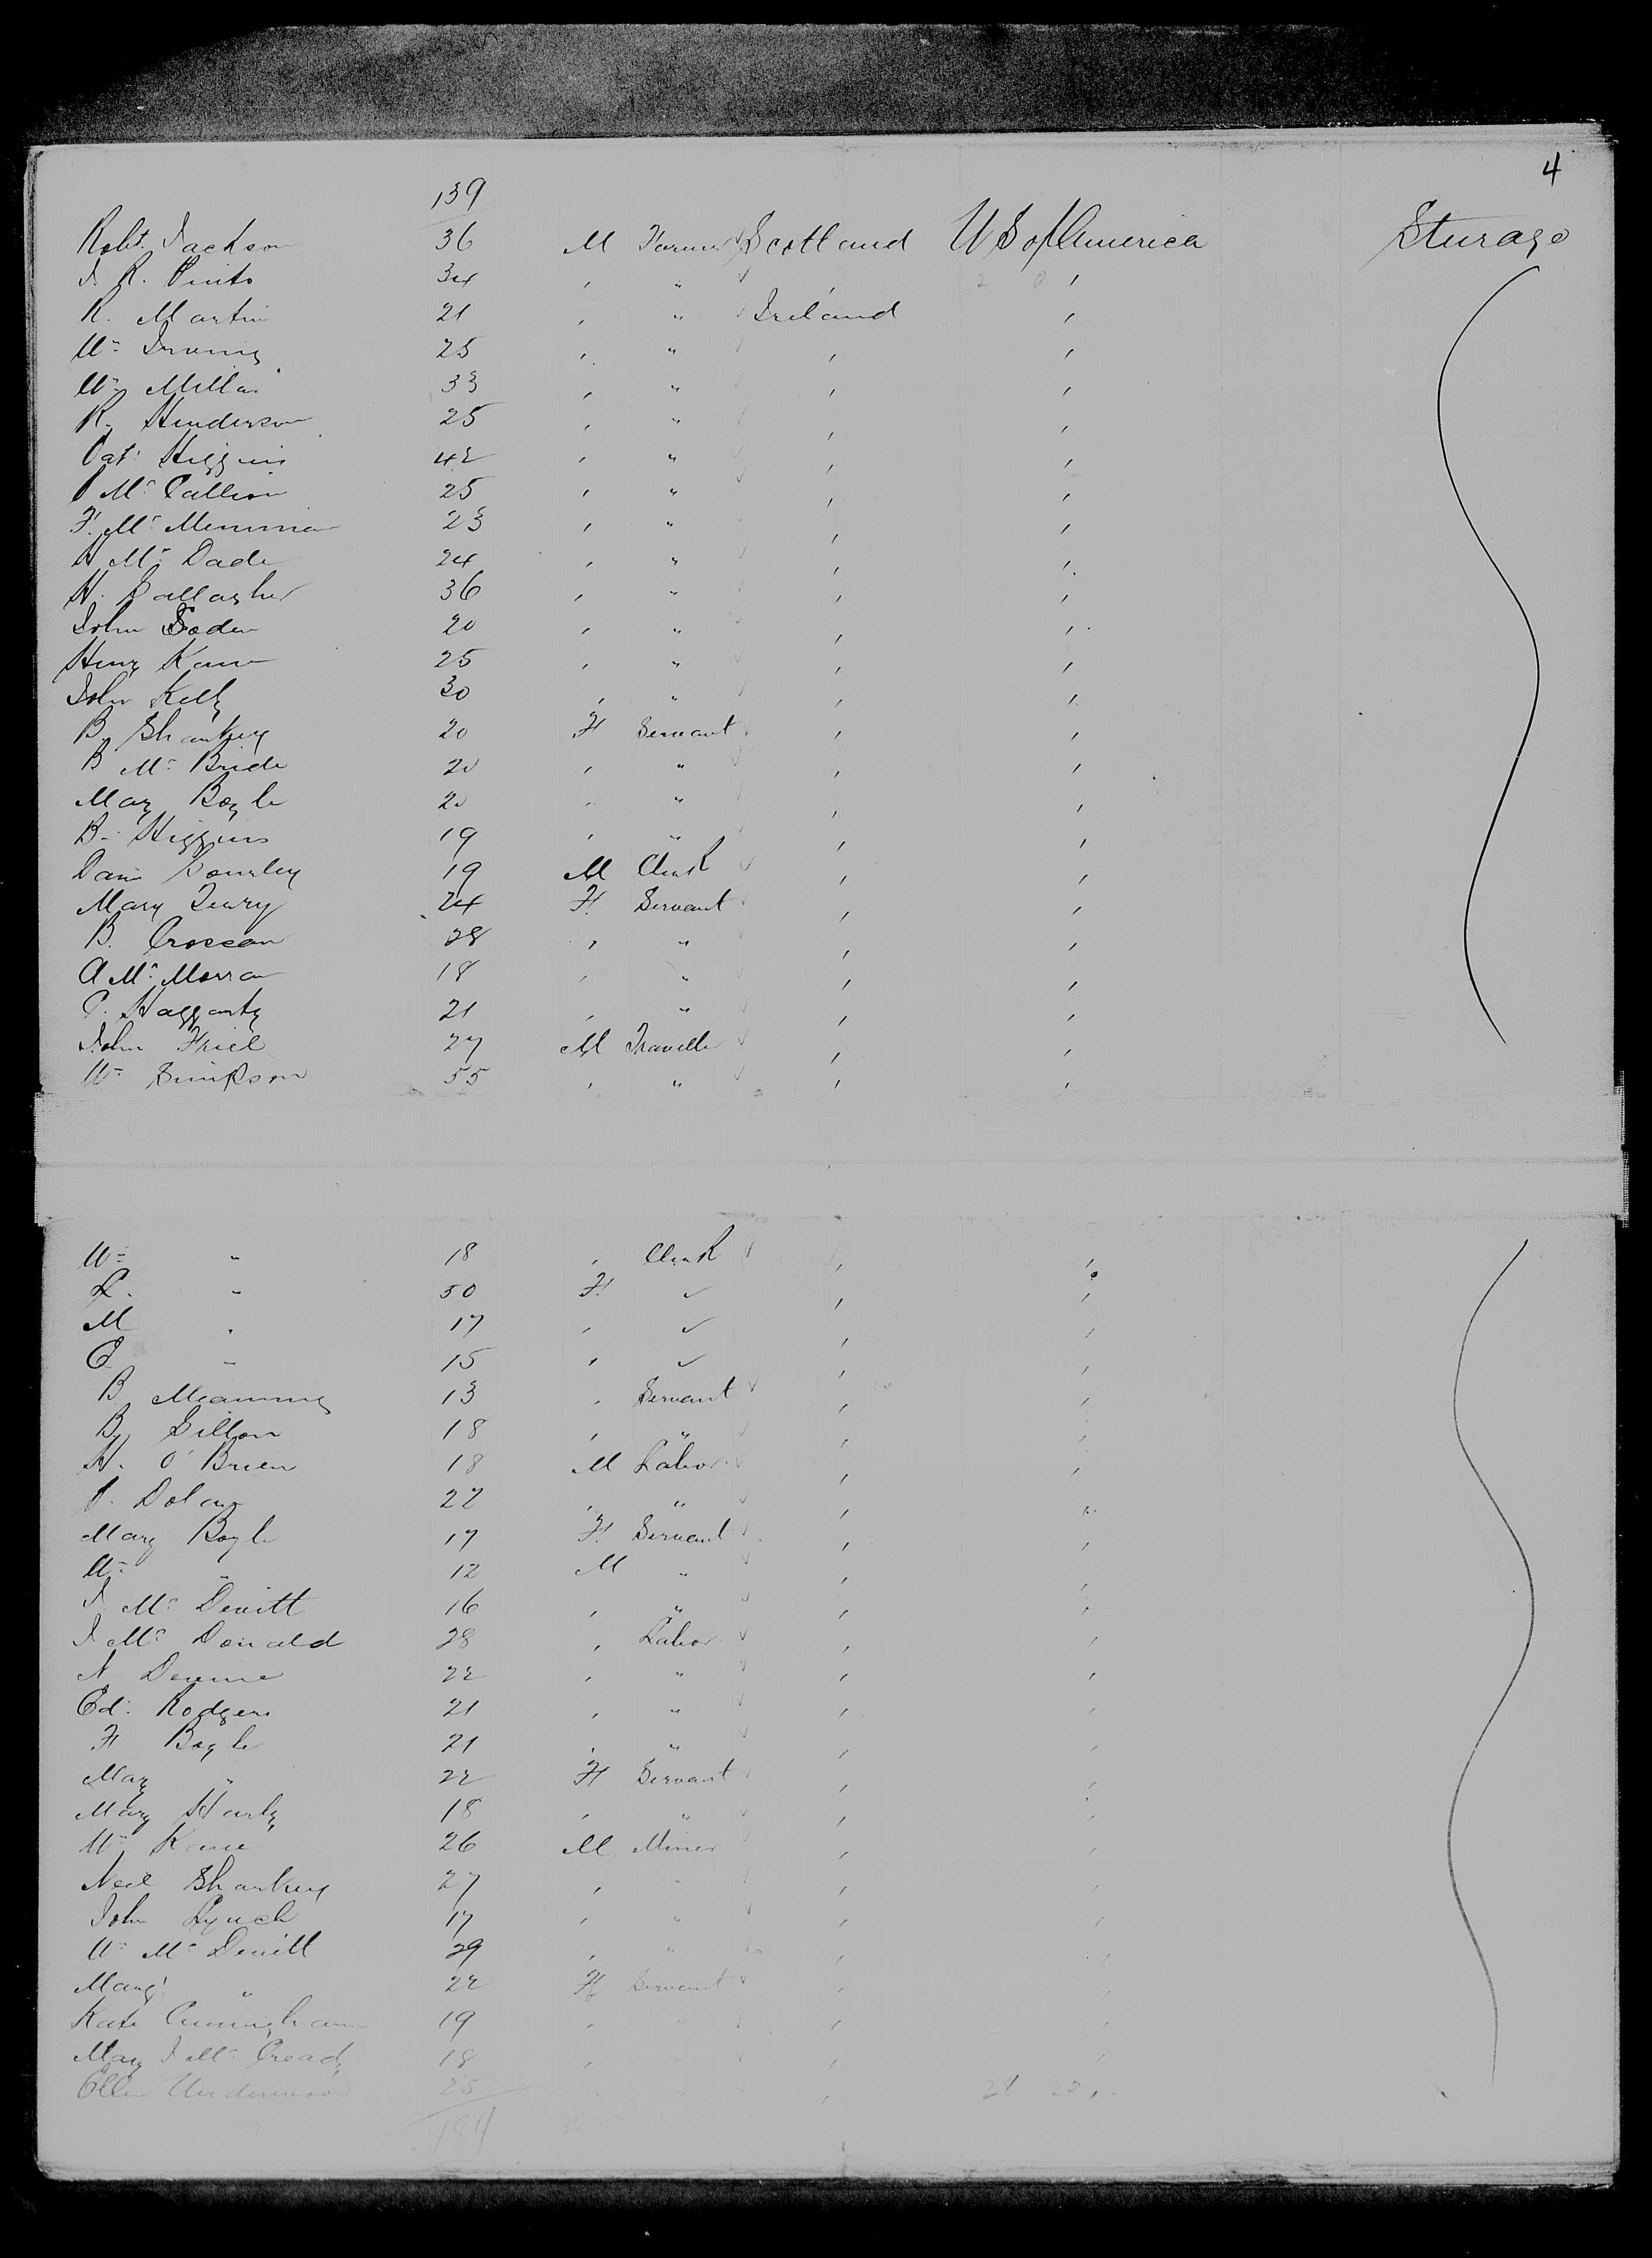 4
139
Robt. Jackson 36 M Farmer Scotland U S of America Sturage
34 , " , ,
R. Martin 21 , " Ireland ,
Wm Irving 25 , " , ,
Wm Millar 33 , " , ,
R. Henderson 25 , " , ,
Pat: Higgins 42 , " , ,
P Mc Callion 25 , " , ,
F. Mc 23 , " , ,
H Mc Dade 24 , " , ,
H. Gallagher 36 , " , ,
John Soden 20 , " , ,
Henry Kane 25 , " , ,
John Kelly 30 , " , ,
B. Sharkey 20 F Servant , ,
B Mc Bride 20 , " , ,
Mary Boyle 20 , " , ,
B. Higgins 19 , " , ,
19 M Clerk , ,
Mary 24 F. Servant , ,
B. Crossan 28 , " , ,
A Mc 18 , " , ,
Haggarty 21 , " , ,
John Friel 27 M Traveller , ,
Wm Simpson 55 , " , ,
Wm " 18 , Clerk , ,
" 50 F. ✓ , ,
M " 17 , ✓ , ,
" 15 , ✓ , ,
B 13 , Servant , ,
B. Gillon 18 , " , ,
H. O'Brien 18 M Labor. , ,
P. Dolan 22 , " , ,
Mary Boyle 17 F. Servant , ,
Wm " 12 M " , ,
J Mc Devitt 16 , " , ,
J Mc Donald 28 , Labor. , ,
N 22 , " , ,
Ed: Rodgers 21 , " , ,
F Boyle 21 , " , ,
Mary " 22 F Servant , ,
Mary 18 , " , ,
Wm Kane 26 M Miner , ,
Neil Sharkey 27 , " , ,
John Lynch 17 , " , ,
Wm Mc Devitt 29 , " , ,
Marg' " 22 F Servant , ,
Kate Cunningham 19 , " , ,
Mary J Mc Cready 18 , " , ,
Ellen Underwood 25 , " , ,
184